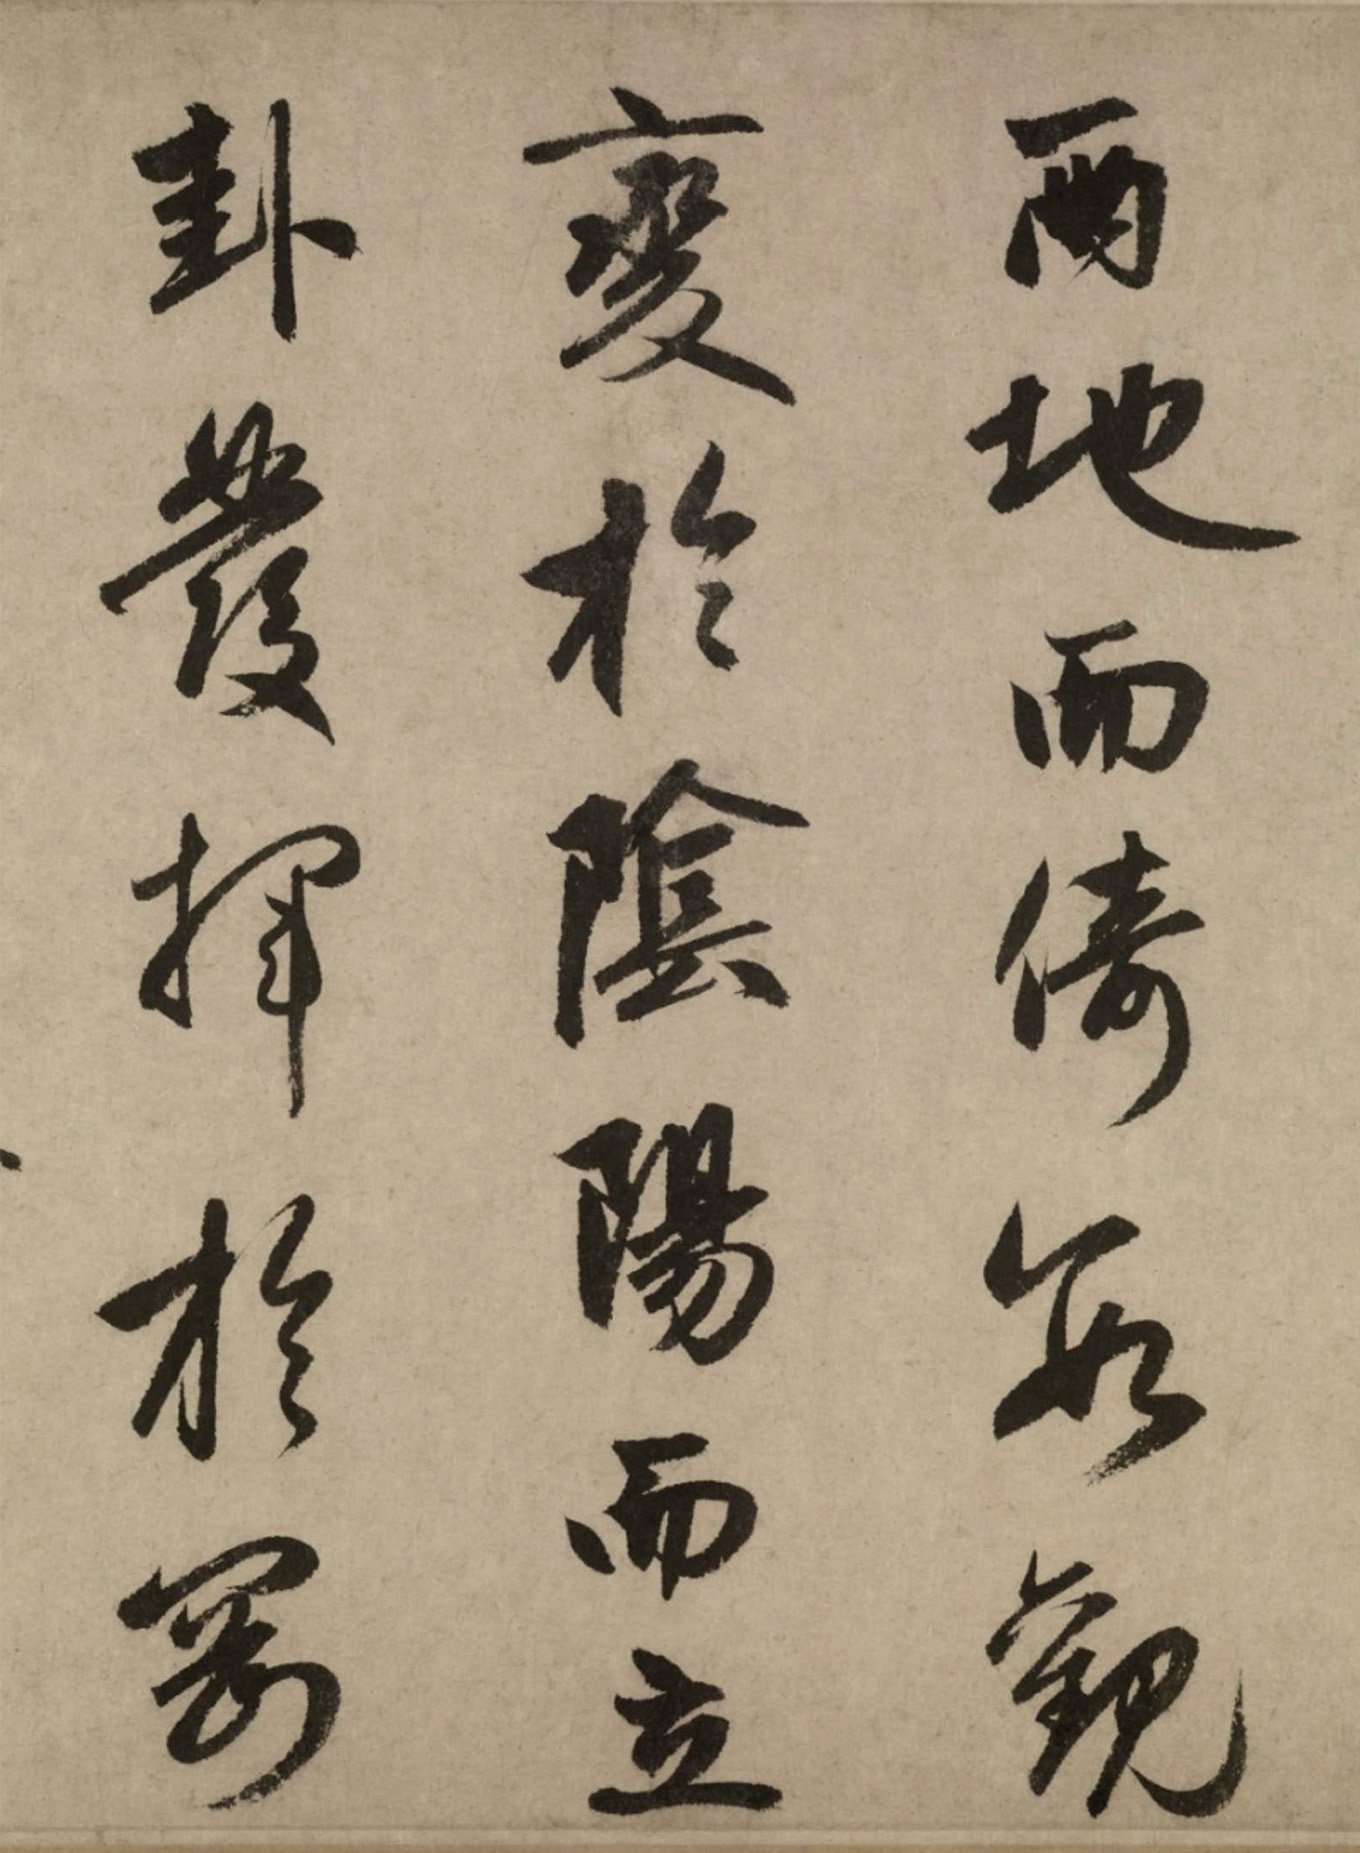 兩地而倚數觀
變於陰陽而立
卦發揮於剛